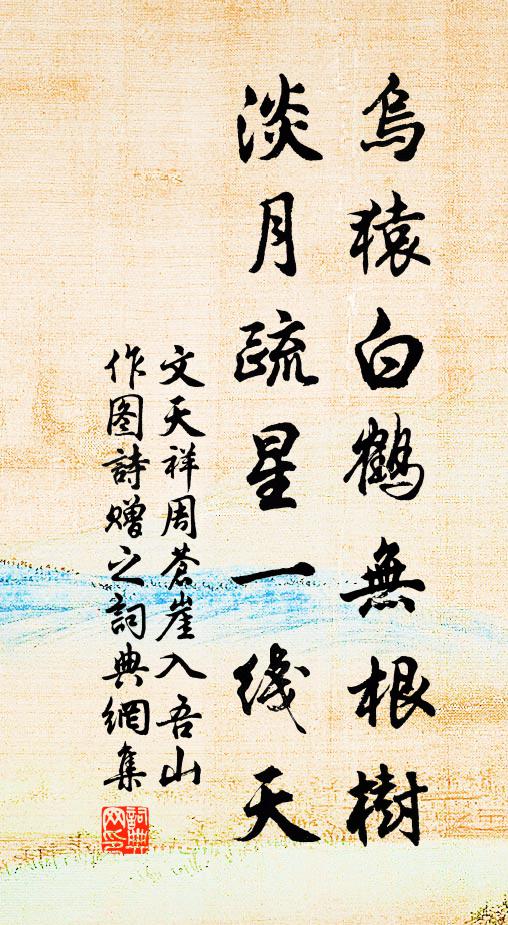 烏猿白鶴無根樹
淡月疏星一线天
文天祥周蒼崖入吾山
作图詩贈之詞典網集
詞典网印